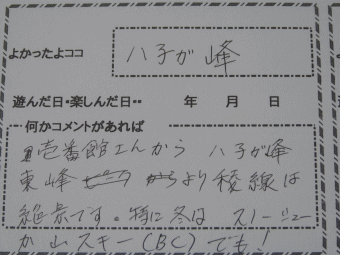 よかったよココ 八子が峰
遊んだ日・楽しんだ日・・ 年 月 日
何かコメントがあれば
壱番館さんから 八子が峰
東峰 より稜線は
絶景です。特に冬は スノーシュー
か山スキー(BC)でも!